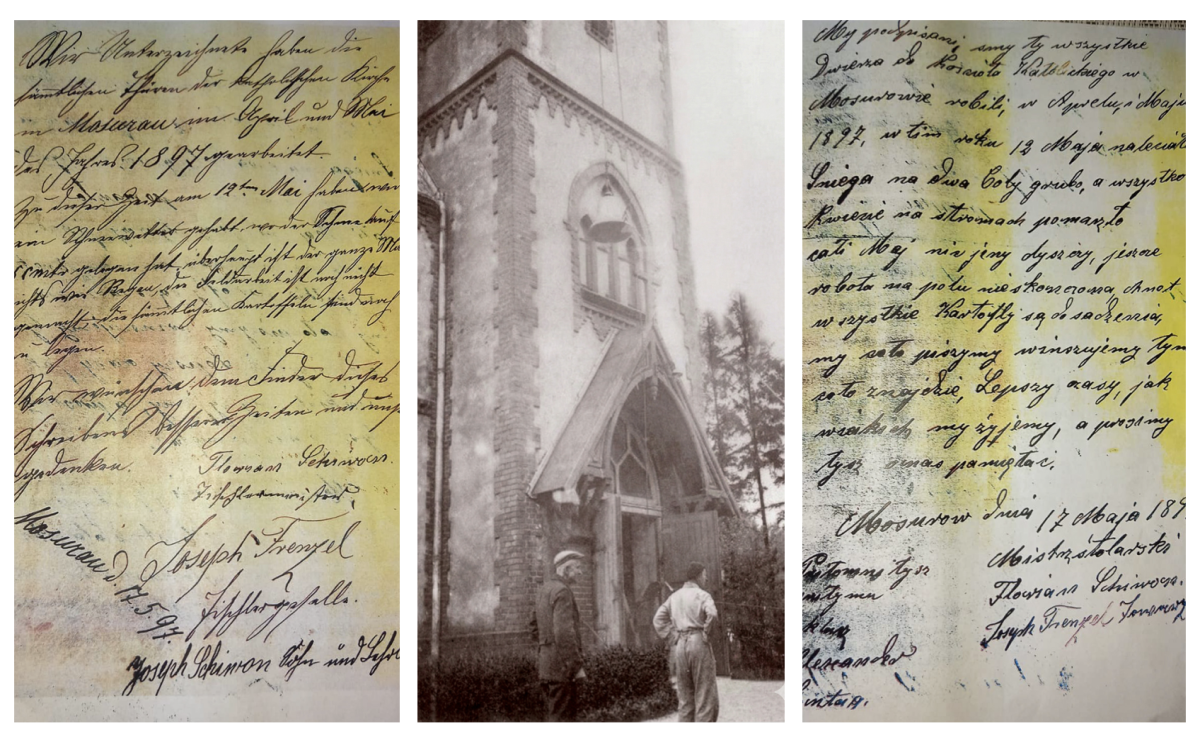 Wir Unterzeichnete haben die
sämmtlichen Thüren der katholischen Kirche
in Mosurau im April und Mai
des Jahres 1897 gearbeitet
Zu dieser Zeit am 12ten Mai haben wir
ein Schneewetter gehabt, wo der Schnee auf
gelegen hat, überhaupt ist der ganze Mai
nichts wie Regen, die Feldarbeit ist noch nicht
gemacht, die sämmtlichen Kartoffeln sind noch
zu legen.
Wir wünschen dem Finder dieses
Schreibens bessere Zeiten und uns
gedenken.
Florian Schiwon.
Tischlermeister,
Mosurau d. 17.5.97
Joseph Frenzel
Tischlergeselle.
Joseph Schiwon Sohn und Lehr
My podpisani, my ty wszystkie
Dwierza do Kosciola Katolickiego w
Mosurowie robili, w Aprelu, i Maju
1897, w tim roku 12 Maja naleciało
Śniega na dwa Coly grubo, a wszystko
Kwiecie na stromach pomarzło
cali Maj nic jeny dyszczy, jeszcze
robota na polu nieskonczona, chnet
wszystkie Kartofly są do sadzenia,
my coto piszymy winszujemy tym
coto znajdzie, Lepszy czasy, jak
w my żyjemy, a prosimy
tysz onas pamiętać.
Mosurow dnia 17 Maja 189
Mistrz stolarski
Florian Schiwon.
Joseph Frenzel
tysz